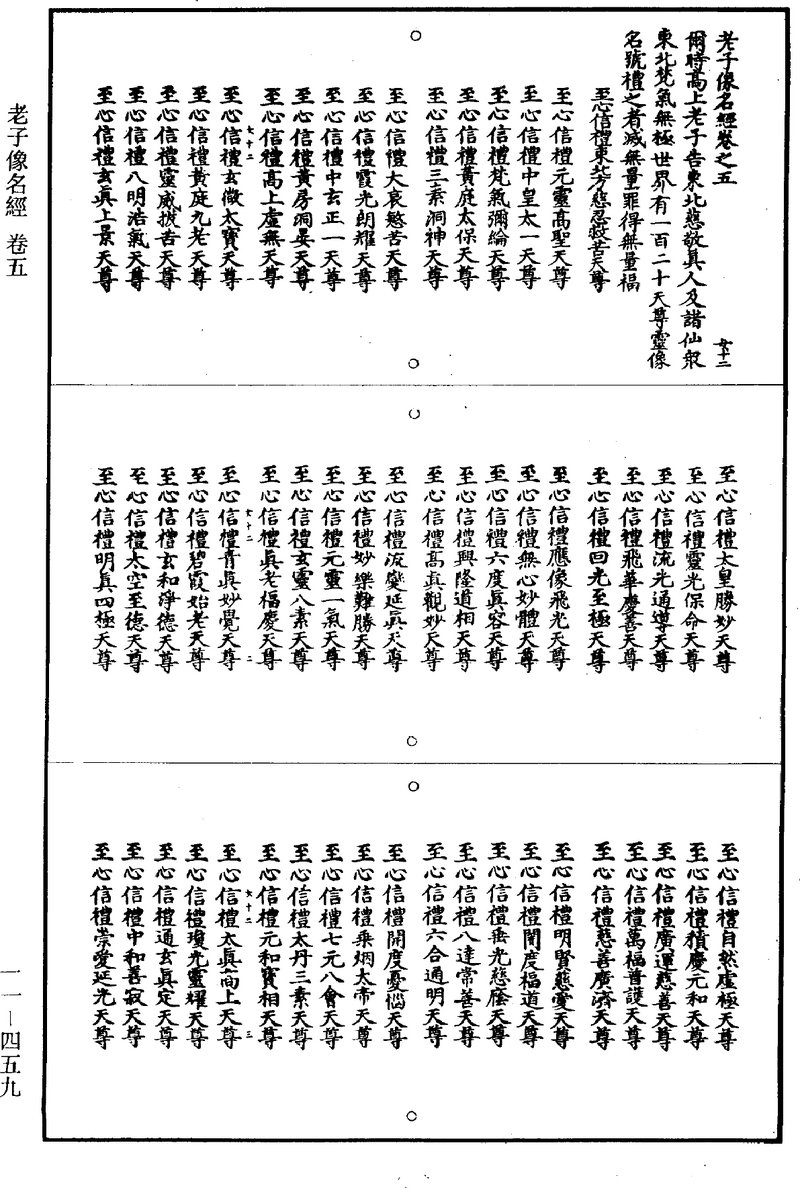 老子像名經卷之五 女十二
爾時高上老子告東北慈敬眞人及諸仙衆
東北梵氣無極世界有一百二十天尊靈像
名號禮之者滅無量罪得無量福
至心信禮東北方慈忍救苦天尊
至心信禮元靈高聖天尊
至心信禮中皇太一天尊
至心信禮梵氣彌綸天尊
至心信禮黃庭太保天尊
至心信禮三素洞神天尊
至心信禮大哀愍苦天尊
至心信禮霞光朗耀天尊
至心信禮中玄正一天尊
至心信禮黃房洞晏天尊
至心信禮高上虛無天尊
女十二 一
至心信禮玄微太寶天尊
至心信禮黃庭九老天尊
至心信禮靈威拔苦天尊
至心信禮八明浩氣天尊
至心信禮玄眞上景天尊
至心信禮太皇勝妙天尊
至心信禮靈光保命天尊
至心信禮流光通導天尊
至心信禮飛華慶善天尊
至心信禮回光至極天尊
至心信禮應像飛光天尊
至心信禮無心妙體天尊
至心信禮六度眞容天尊
至心信禮興隆道相天尊
至心信禮高眞觀妙天尊
至心信禮流變延眞天尊
至心信禮妙樂難勝天尊
至心信禮元靈一氣天尊
至心信禮玄靈八素天尊
至心信禮眞老福慶天尊
女十二 二
至心信禮青眞妙覺天尊
至心信禮碧霞始老天尊
至心信禮玄和淨德天尊
至心信禮太空至德天尊
至心信禮明眞四極天尊
至心信禮自然虛極天尊
至心信禮積慶元和天尊
至心信禮廣運慈善天尊
至心信禮萬福普護天尊
至心信禮慈善廣濟天尊
至心信禮明賢慈愛天尊
至心信禮開度福道天尊
至心信禮垂光慈蔭天尊
至心信禮八達常善天尊
至心信禮六合通明天尊
至心信禮開度憂惱天尊
至心信禮乘烟太帝天尊
至心信禮七元八會天尊
至心信禮太丹三素天尊
至心信禮元和寶相天尊
女十二 三
至心信禮太眞高上天尊
至心信禮瓊光靈耀天尊
至心信禮通玄眞定天尊
至心信禮中和善寂天尊
至心信禮崇愛延光天尊
老子像名經 卷五
一一—四五九